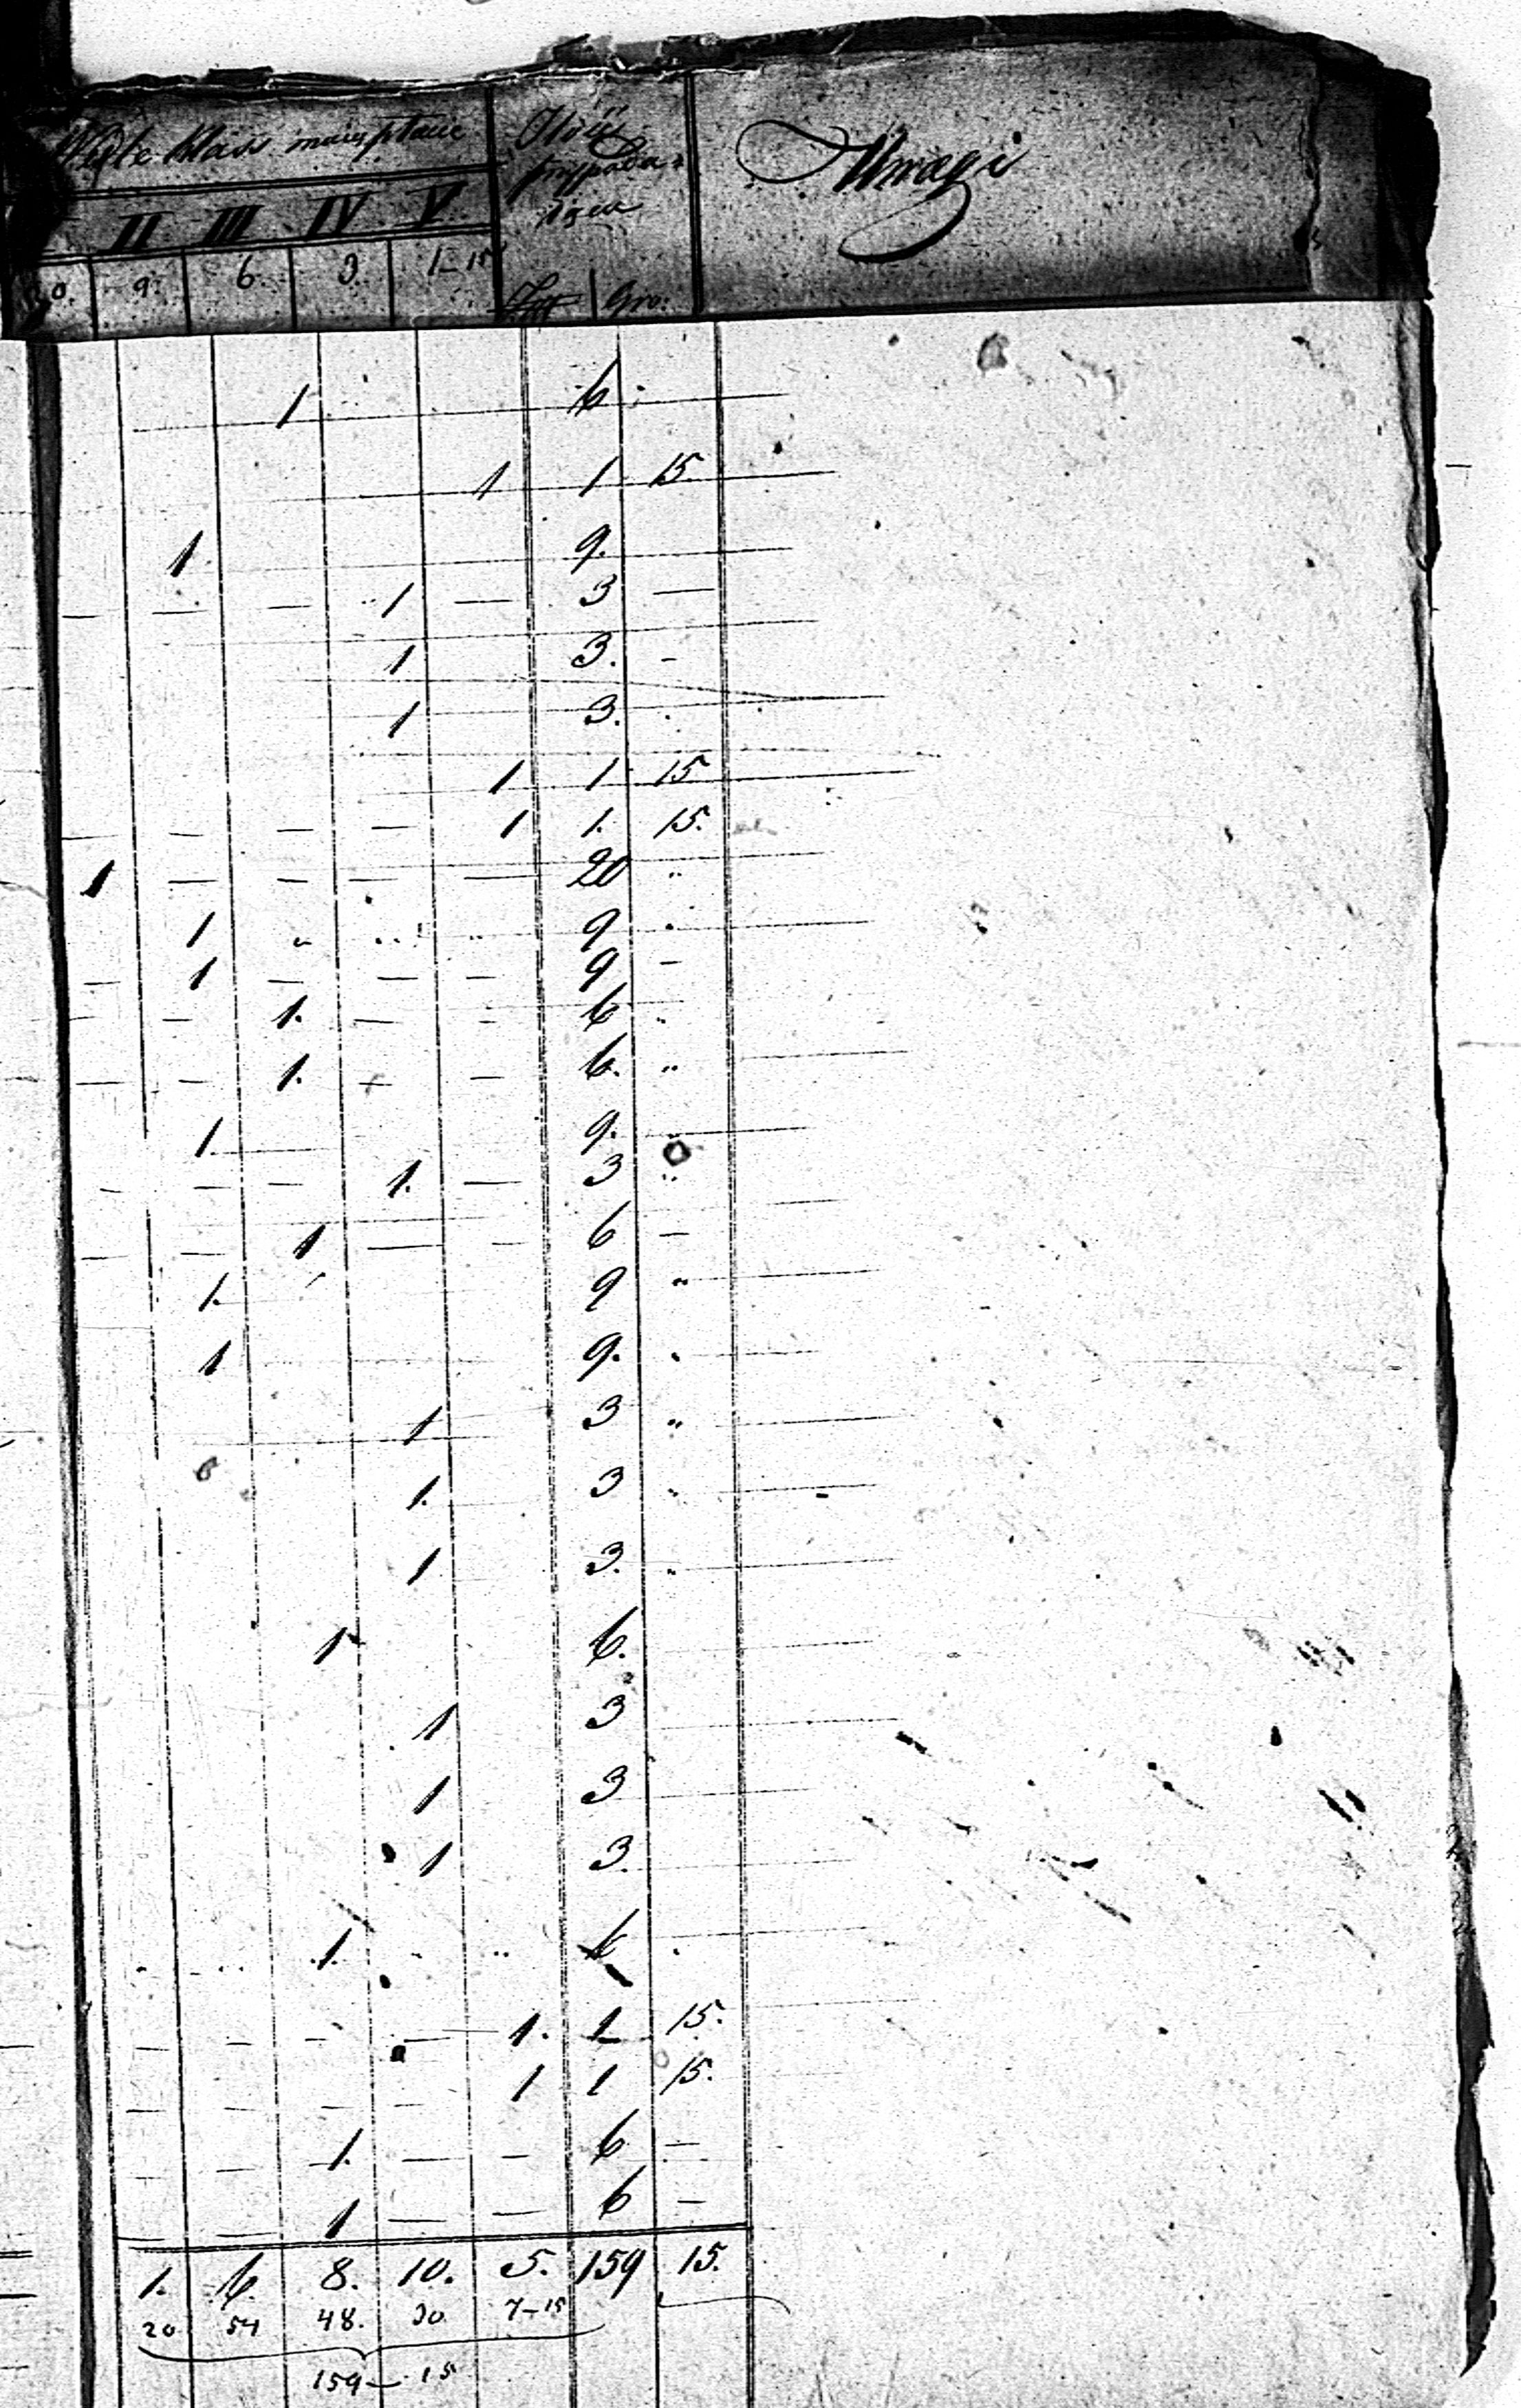 klass
Ilość
Uwagi
II III IV V
9. 6. 3. 1-15
Gro:
1 6
1 1 15
1. 9.
— — — 1 — 3 —
1 3. -
1 3. .
1 1 15
— — — — 1 1. 15.
1 — — — — 20 "
1 " " " 9 "
— 1 — — — 9 -
— — 1. — - 6 "
— — 1. — 6. "
1. 9. "
— — — 1. — 3 "
— — 1 — — 6 —
1. 9 "
1 9. "
1 3 "
1. 3 "
1 3. "
1 6.
1 3
1 3
1 3.
1. " 6 .
— — — 1. 1 15.
— — — — 1 1 15.
— — 1. — — 6 —
— — 1 — — 6 —
1. 6. 8. 10. 5. 159 15.
20 54 48. 30 7-15
159-15